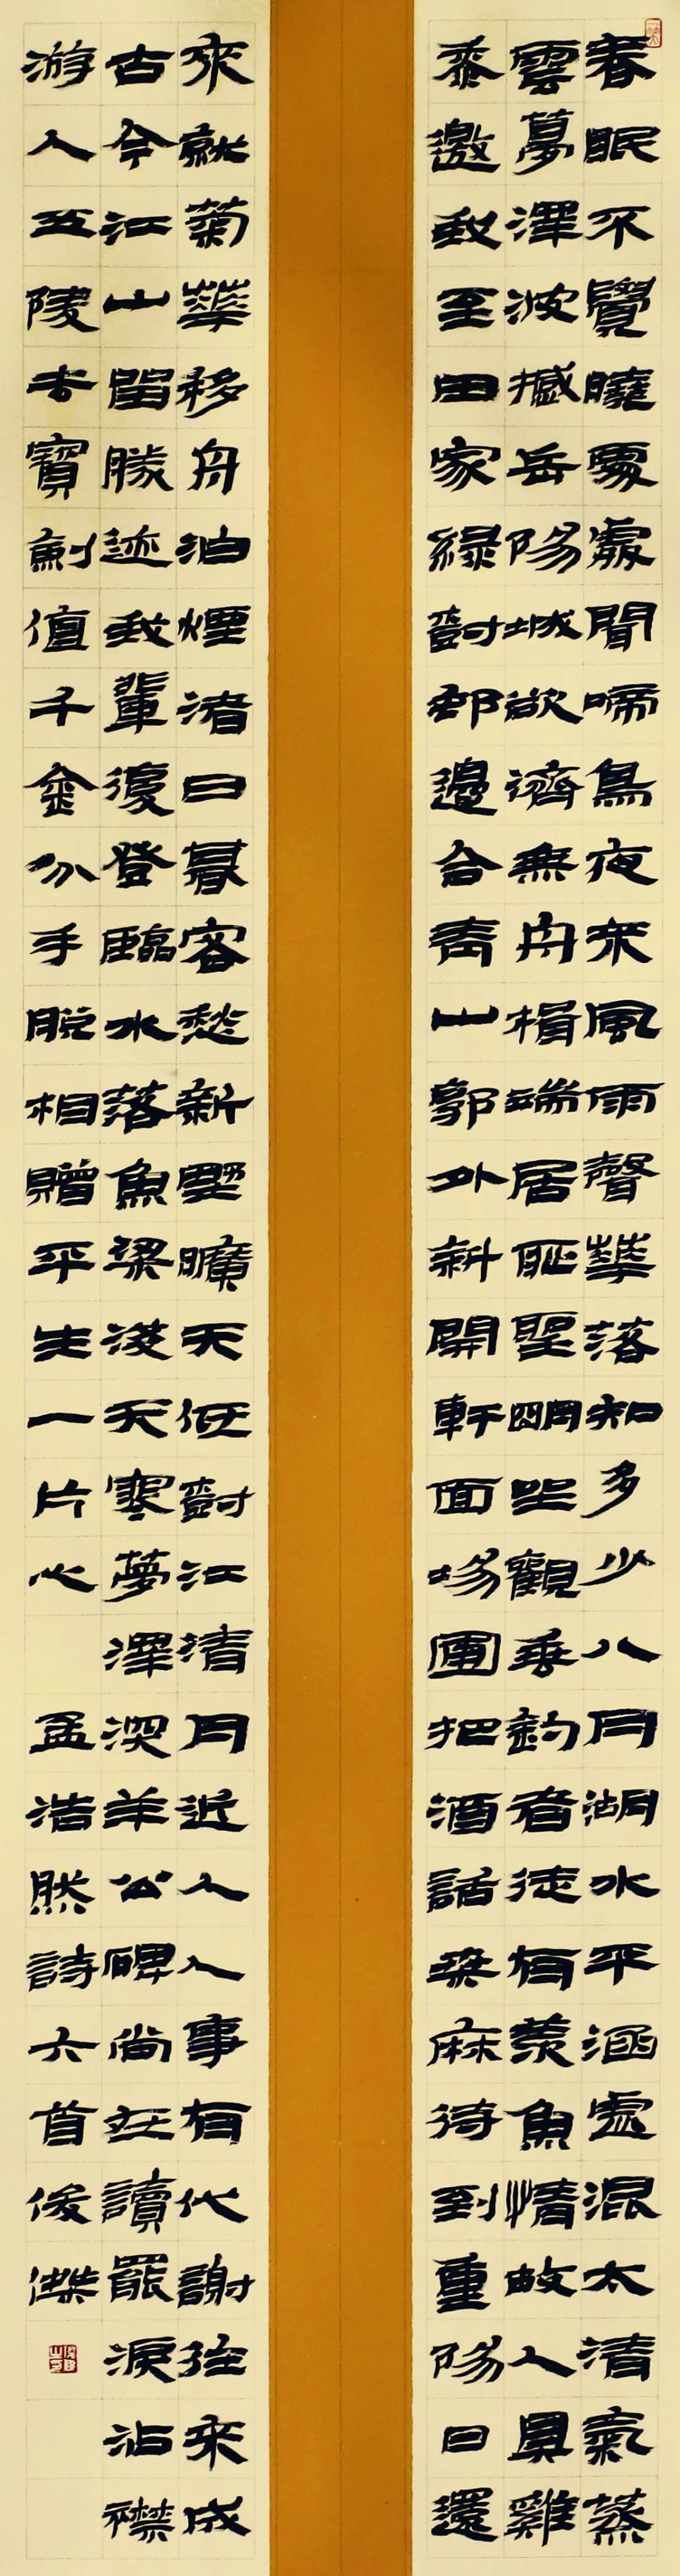 春眠不覺曉處處聞啼鳥夜來風雨聲華落知多少八月湖水平涵虛混太清氣蒸
雲夢澤波撼岳陽城欲濟無舟楫端居恥聖明坐觀垂釣者徒有羨魚情故人具雞
黍邀我至田家綠樹邨邊合青山郭外斜開軒面場圃把酒話桑麻待到重陽日還
來就菊華移舟泊煙渚日暮客愁新野曠天低樹江清月近人人事有代謝往來成
古今江山留勝迹我輩復登臨水落魚梁淺天寒夢澤深羊公碑尚在讀罷淚沾襟
游人五陵去寶劍值千金分手脫相贈平生一片心 孟浩然詩六首俊傑